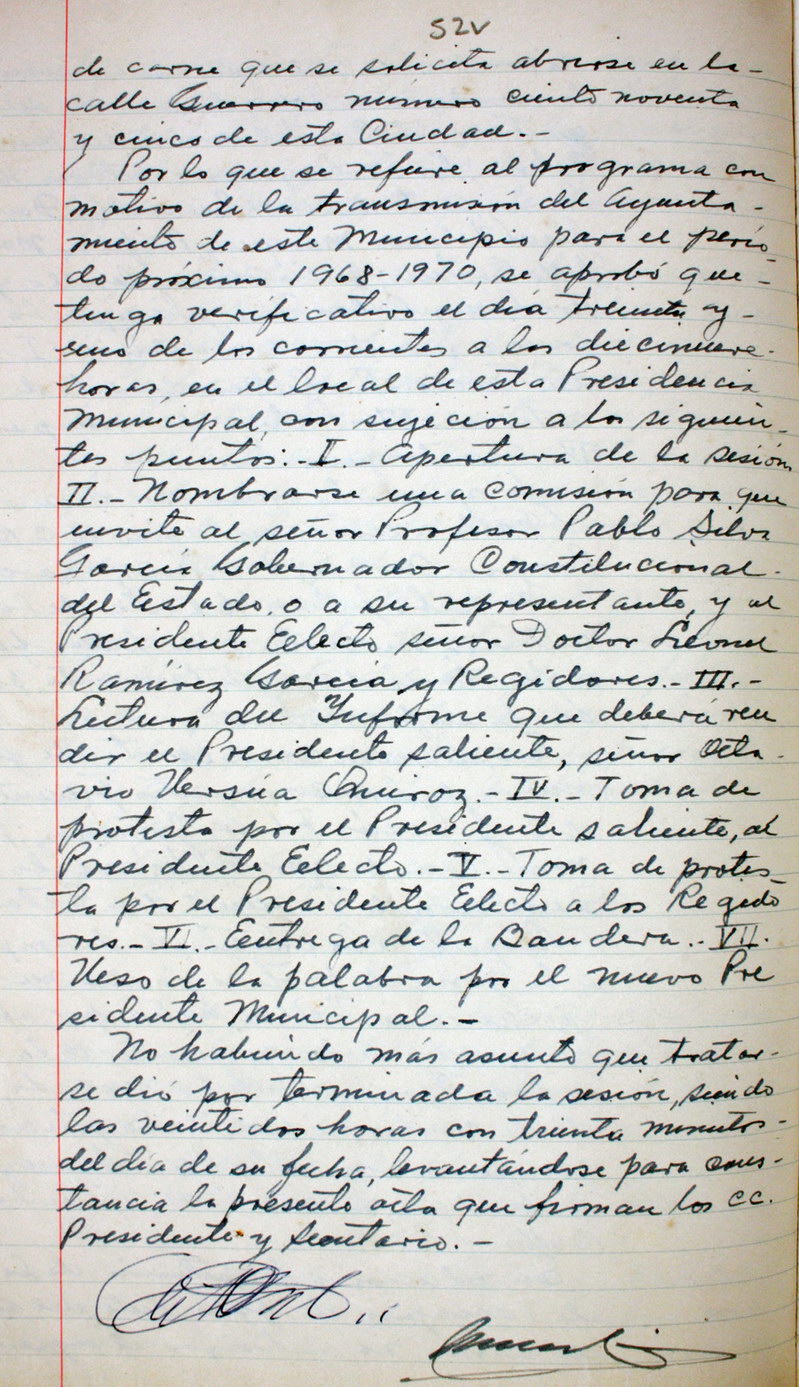 52v
de carne que se solicita abrirse en la-
calle Guerrero número ciento noventa
y cinco de esta Ciudad.-
Por lo que se refiere al programa con
motivo de la transmisión del Ayunta-
miento de este Municipio para el perío-
do próximo 1968-1970, se aprobó que-
tenga verificativo el día treinta y-
uno de los corrientes a las diecinueve-
horas, en el local de esta Presidencia
Municipal, con sujeción a los siguien-
tes puntos:.-I.- Apertura de la sesión
II.- Nombrarse una comisión para que
invite al señor Profesor Pablo Silva
García Gobernador Constitucional-
del Estado, o a su representante, y al
Presidente Eelecto señor Doctor Leonel
Ramírez García y Regidores.- III.-
Lectura del Informe que deberá ren
dir el Presidente saliente, señor Octa-
vio Versúa Quiroz.- IV.- Toma de
protesta por el Presidente saliente, al
Presidente Eelecto.- V.- Toma de protes-
ta por el Presidente Eelecto a los Regido
res.- VI.- Eentrega de la Bandera.- VII.
Uso de la palabra por el nuevo Pre
sidente Municipal.-
No habiendo más asunto que tratar-
se dió por terminada la sesión, siendo
las veintidos horas con treinta minutos-
del día de su fecha, levantándose para cons-
tancia la presente acta que firman los CC.
Presidente y Secretario.-